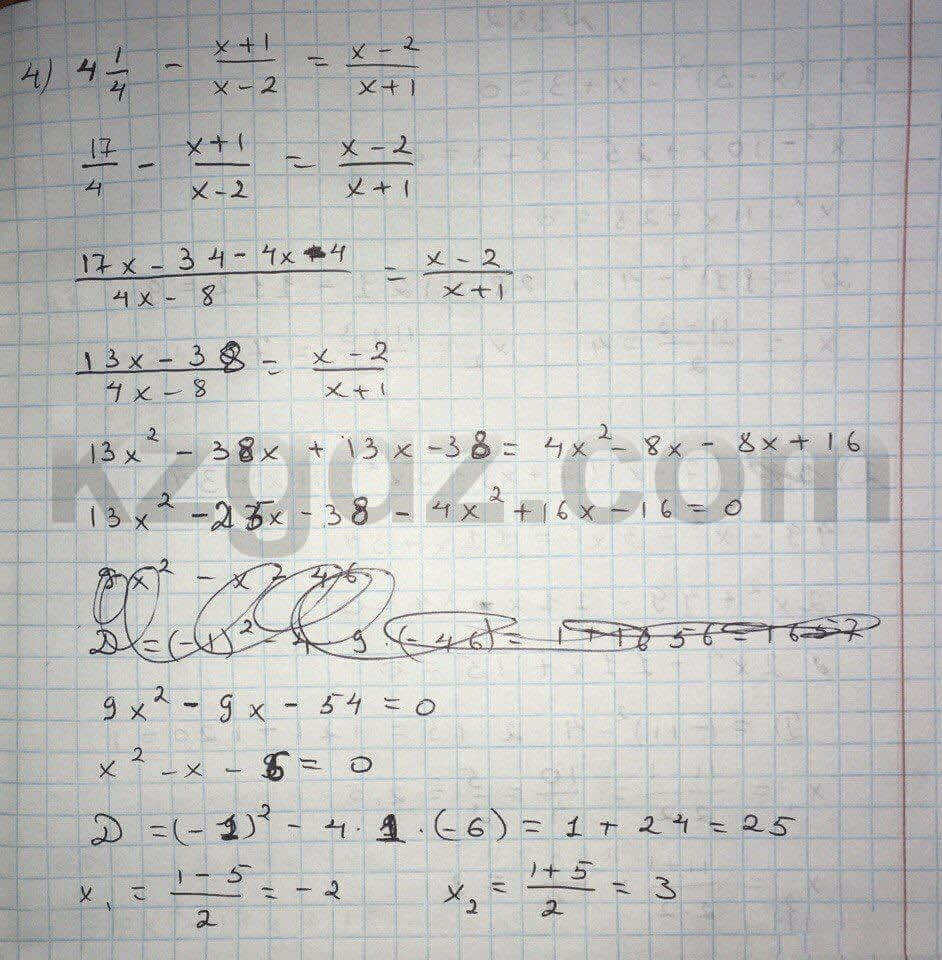 4) 4 1/4 - (x+1)/(x-2) = (x-2)/(x+1)
17/4 - (x+1)/(x-2) = (x-2)/(x+1)
(17x-34-4x-4)/(4x-8) = (x-2)/(x+1)
(13x-38)/(4x-8) = (x-2)/(x+1)
13x² - 38x + 13x - 38 = 4x² - 8x - 8x + 16
kzgdz.com
13x² - 25x - 38 - 4x² + 16x - 16 = 0
9x² - x - 46
D = (-1)² - 4 · 9 · (-46) = 1 + 1656 = 1657
9x² - 9x - 54 = 0
x² - x - 6 = 0
D = (-1)² - 4 · 1 · (-6) = 1 + 24 = 25
x₁ = (1-5)/2 = -2     x₂ = (1+5)/2 = 3